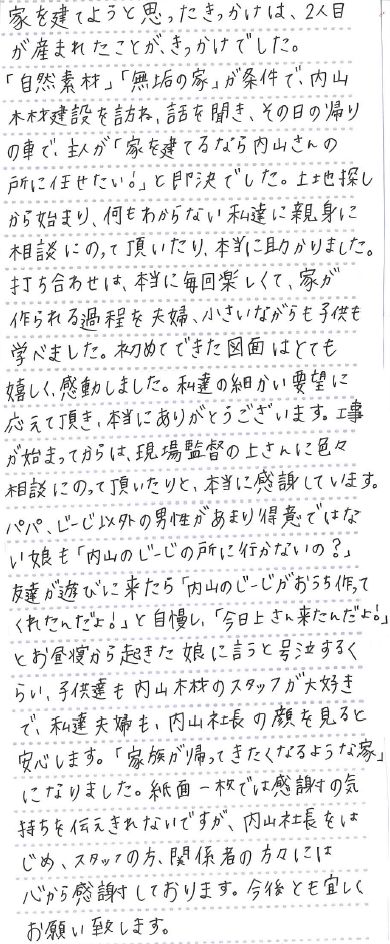 家を建てようと思ったきっかけは、2人目
が産まれたことが、きっかけでした。
「自然素材」「無垢の家」が条件で、内山
木材建設を訪ね、話を聞き、その日の帰り
の車で、主人が「家を建てるなら内山さんの
所に任せたい!」と即決でした。土地探し
から始まり、何もわからない私達に親身に
相談にのって頂いたり、本当に助かりました。
打ち合わせは、本当に毎回楽しくて、家が
作られる過程を夫婦、小さいながらも子供も
学べました。初めてできた図面はとても
嬉しく、感動しました。私達の細かい要望に
応えて頂き、本当にありがとうございます。工事
が始まってからは、現場監督の上さんに色々
相談にのって頂いたりと、本当に感謝しています。
パパ、じーじ以外の男性があまり得意ではな
い娘も「内山のじーじの所に行かないの?」
友達が遊びに来たら「内山のじーじがおうち作って
くれたんだよ!」と自慢し、「今日上さん来たんだよ!」
とお昼寝から起きた娘に言うと号泣するく
らい、子供達も内山木材のスタッフが大好き
で、私達夫婦も、内山社長の顔を見ると
安心します。「家族が帰ってきたくなるような家」
になりました。紙面一枚では感謝の気
持ちを伝えきれないですが、内山社長をは
じめ、スタッフの方、関係者の方々には
心から感謝しております。今後とも宜しく
お願い致します。